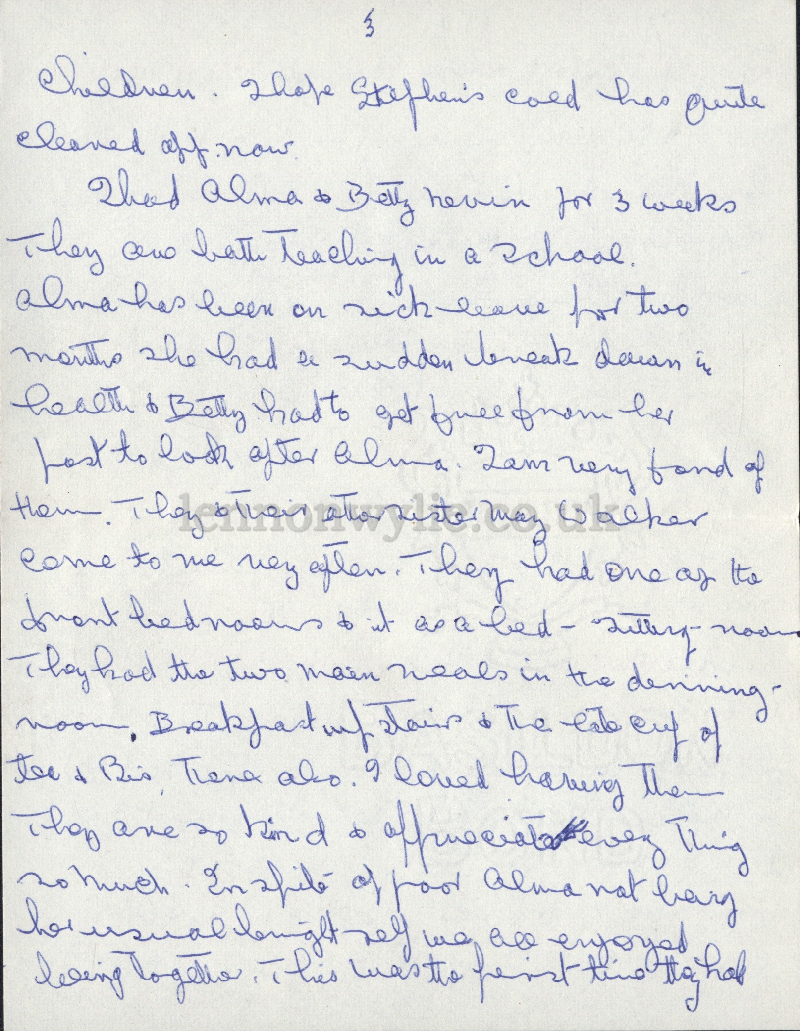 3
Children. I hope Stephen's cold has quite
cleared off now.
I had Alma & Betty Nevin for 3 weeks
They are both Teaching in a School.
Alma has been on sick-leave for two
months she had a sudden break down in
health & Betty had to get free from her
post to look after Alma. I am very fond of
them. They & their other sister May Walker
come to me very often. They had one of the
front bedrooms & it as a bed-sitting-room
They had the two main meals in the dinning-
room, Breakfast upstairs & the late cup of
tea & Bis, there also. I loved having them
They are so kind & appreciate every Thing
so much. In spite of poor Alma not being
her usual bright self we all enjoyed
being together. This was the first time they had
lennonwylie.co.uk